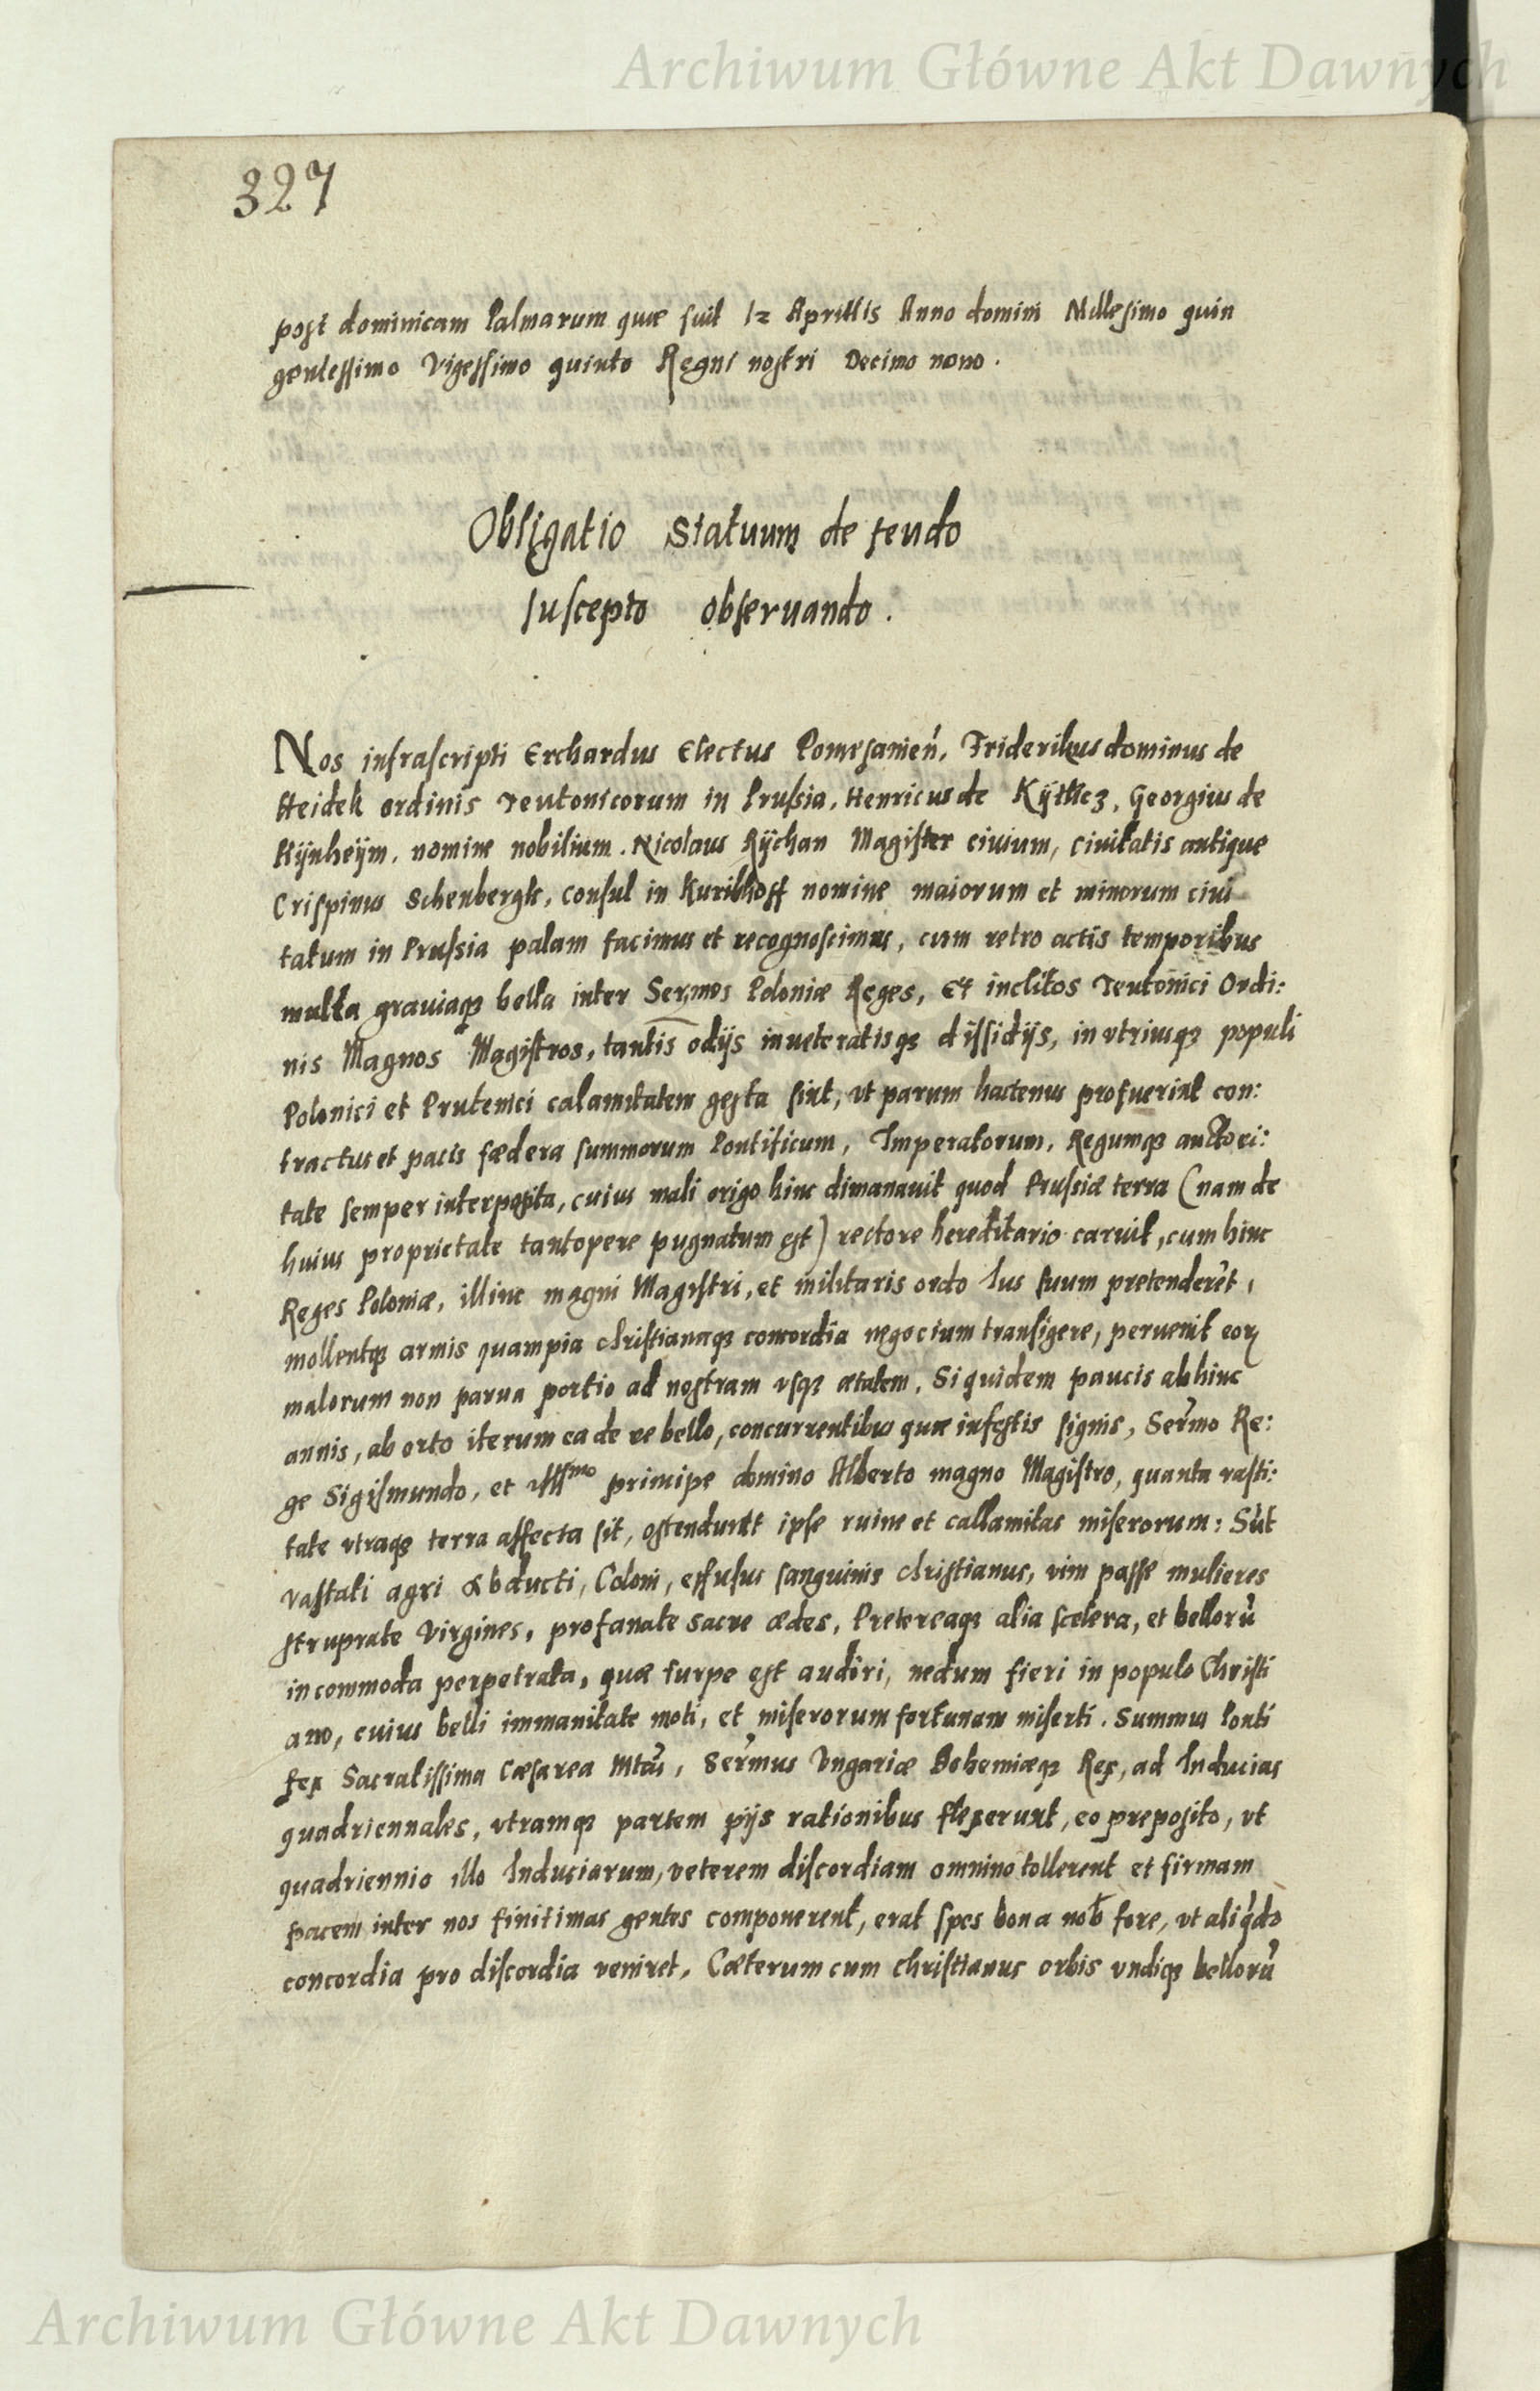 Archiwum Główne Akt Dawnych
327
post dominicam Palmarum quæ fuit 12 Aprillis Anno domini Millesimo quin
gentessimo Vigessimo quinto Regni nostri Decimo nono.
Obligatio Statuum de feudo
suscepto obseruando.
Nos infrascripti Erchardus Electus Pomezanień, Friderikus dominus de
Heidek ordinis Teutonicorum in Prussia, Henricus de Kÿtlicz, Georgius de
Kÿnheÿm, nomine nobilium. Nicolaus Rÿchan Magister ciuium, ciuitatis antique
Crispinus Schenbergk, consul in Kuriphoff nomine maiorum et minorum ciui
tatum in Prussia palam facimus et recognoscimus, cum retro actis temporibus
multa grauiaqꝫ bella inter Serm̃os Poloniæ Reges, Et inclitos Teutonici Ordi:
nis Magnos Magistros, tantis odijs inueteratisqꝫ dissidijs, in vtriusqꝫ populi
Polonici et Prutenici calamitatem gesta sint, vt parum hactenus profuerint con:
tractus et pacis fœdera summorum Pontificum, Imperatorum, Regumqꝫ auctori:
tate semper interposita, cuius mali origo hinc dimanauit quod Prussiæ terra (nam de
huius proprietate tantopere pugnatum est) rectore hereditario caruit, cum hinc
Reges Poloniæ, illinc magni Magistri, et militaris ordo Ius suum pretenderẽt,
mollentqꝫ armis quam pia christianaqꝫ concordia negocium transigere, peruenit eoꝝ
malorum non parua portio ad nostram vsqꝫ ætatem, Siquidem paucis abhinc
annis, ab orto iterum ea de re bello, concurrentibus quæ infestis signis, Serm̃o Re:
ge Sigismundo, et Illssmo principe domino Alberto magno Magistro, quanta vasti:
tate vtraqꝫ terra affecta sit, ostendunt ipse ruine et callamitas miserorum: Sũt
vastati agri abducti, Coloni, effusus sanguinis christianus, vim passe mulieres
struprate Virgines, profanate sacre ædes, Pretereaqꝫ alia scelera, et bellorũ
incommoda perpetrata, quæ turpe est audiri, nedum fieri in populo Christi
ano, cuius belli immanitate moti, et miserorum fortunam miserti. Summus Ponti
fex Sacratissima Cæsarea Mtãs, Serm̃us Vngariæ Bohemiæqꝫ Rex, ad Inducias
quadriennales, vtramqꝫ partem pijs rationibus flexerunt, eo preposito, vt
quadriennio illo Induciarum, veterem discordiam omnino tollerent et firmam
pacem inter nos finitimas gentes componerent, erat spes bona nob̃ fore, vt aliq̃do
concordia pro discordia veniret. Cæterum cum christianus orbis vndiqꝫ bellorũ
Archiwum Główne Akt Dawnych